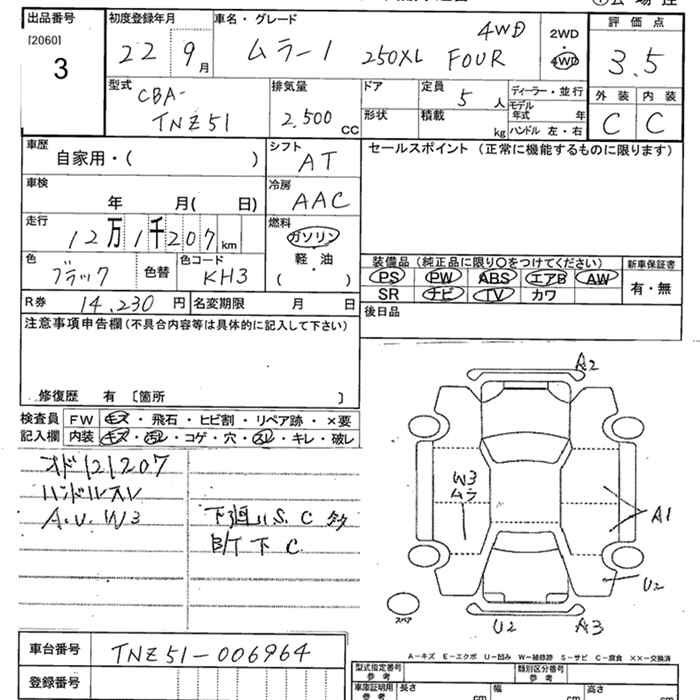 出品番号 初度登録年月 車名・グレード 評価点
[2060] 3 22 9月 ムラーノ 250XL FOUR 4WD 2WD・4WD 3.5
型式 排気量 ドア 定員 ディーラー・並行 外装 内装
CBA-TNZ51 2.500cc 形状 積載 5人 kg モデル年式 年 ハンドル 左・右 C C
車歴 シフト セールスポイント(正常に機能するものに限ります)
自家用・( ) AT
車検 冷房
年 月( 日) AAC
走行 燃料
12万1千207km ガソリン
色 色コード 軽・油 装備品(純正品に限り○をつけてください) 新車保証書
ブラック 色替 KH3 ( ) PS PW ABS エアB AW 有・無
SR ナビ TV カワ
R券 14.230円 名変期限 月 日 後日品
注意事項申告欄(不具合内容等は具体的に記入して下さい)
修復歴 有 [箇所 ]
検査員 FW キズ・飛石・ヒビ割・リペア跡・×要
記入欄 内装 キズ・汚レ・コゲ・穴・スレ・キレ・破レ
オド121207
ハンドルスレ
A.U.W3 下廻りS.C多
B/T下C
A2
W3
ムラ
A1
U2
U2 A3
スペア
A-キズ E-エクボ U-凹み W-補修跡 S-サビ C-腐食 ××-交換済
車台番号 TNZ51-006964
登録番号
型式指定番号 参考 類別区分番号 参考
車庫証明用 参考 長さ cm 幅 cm 高さ cm